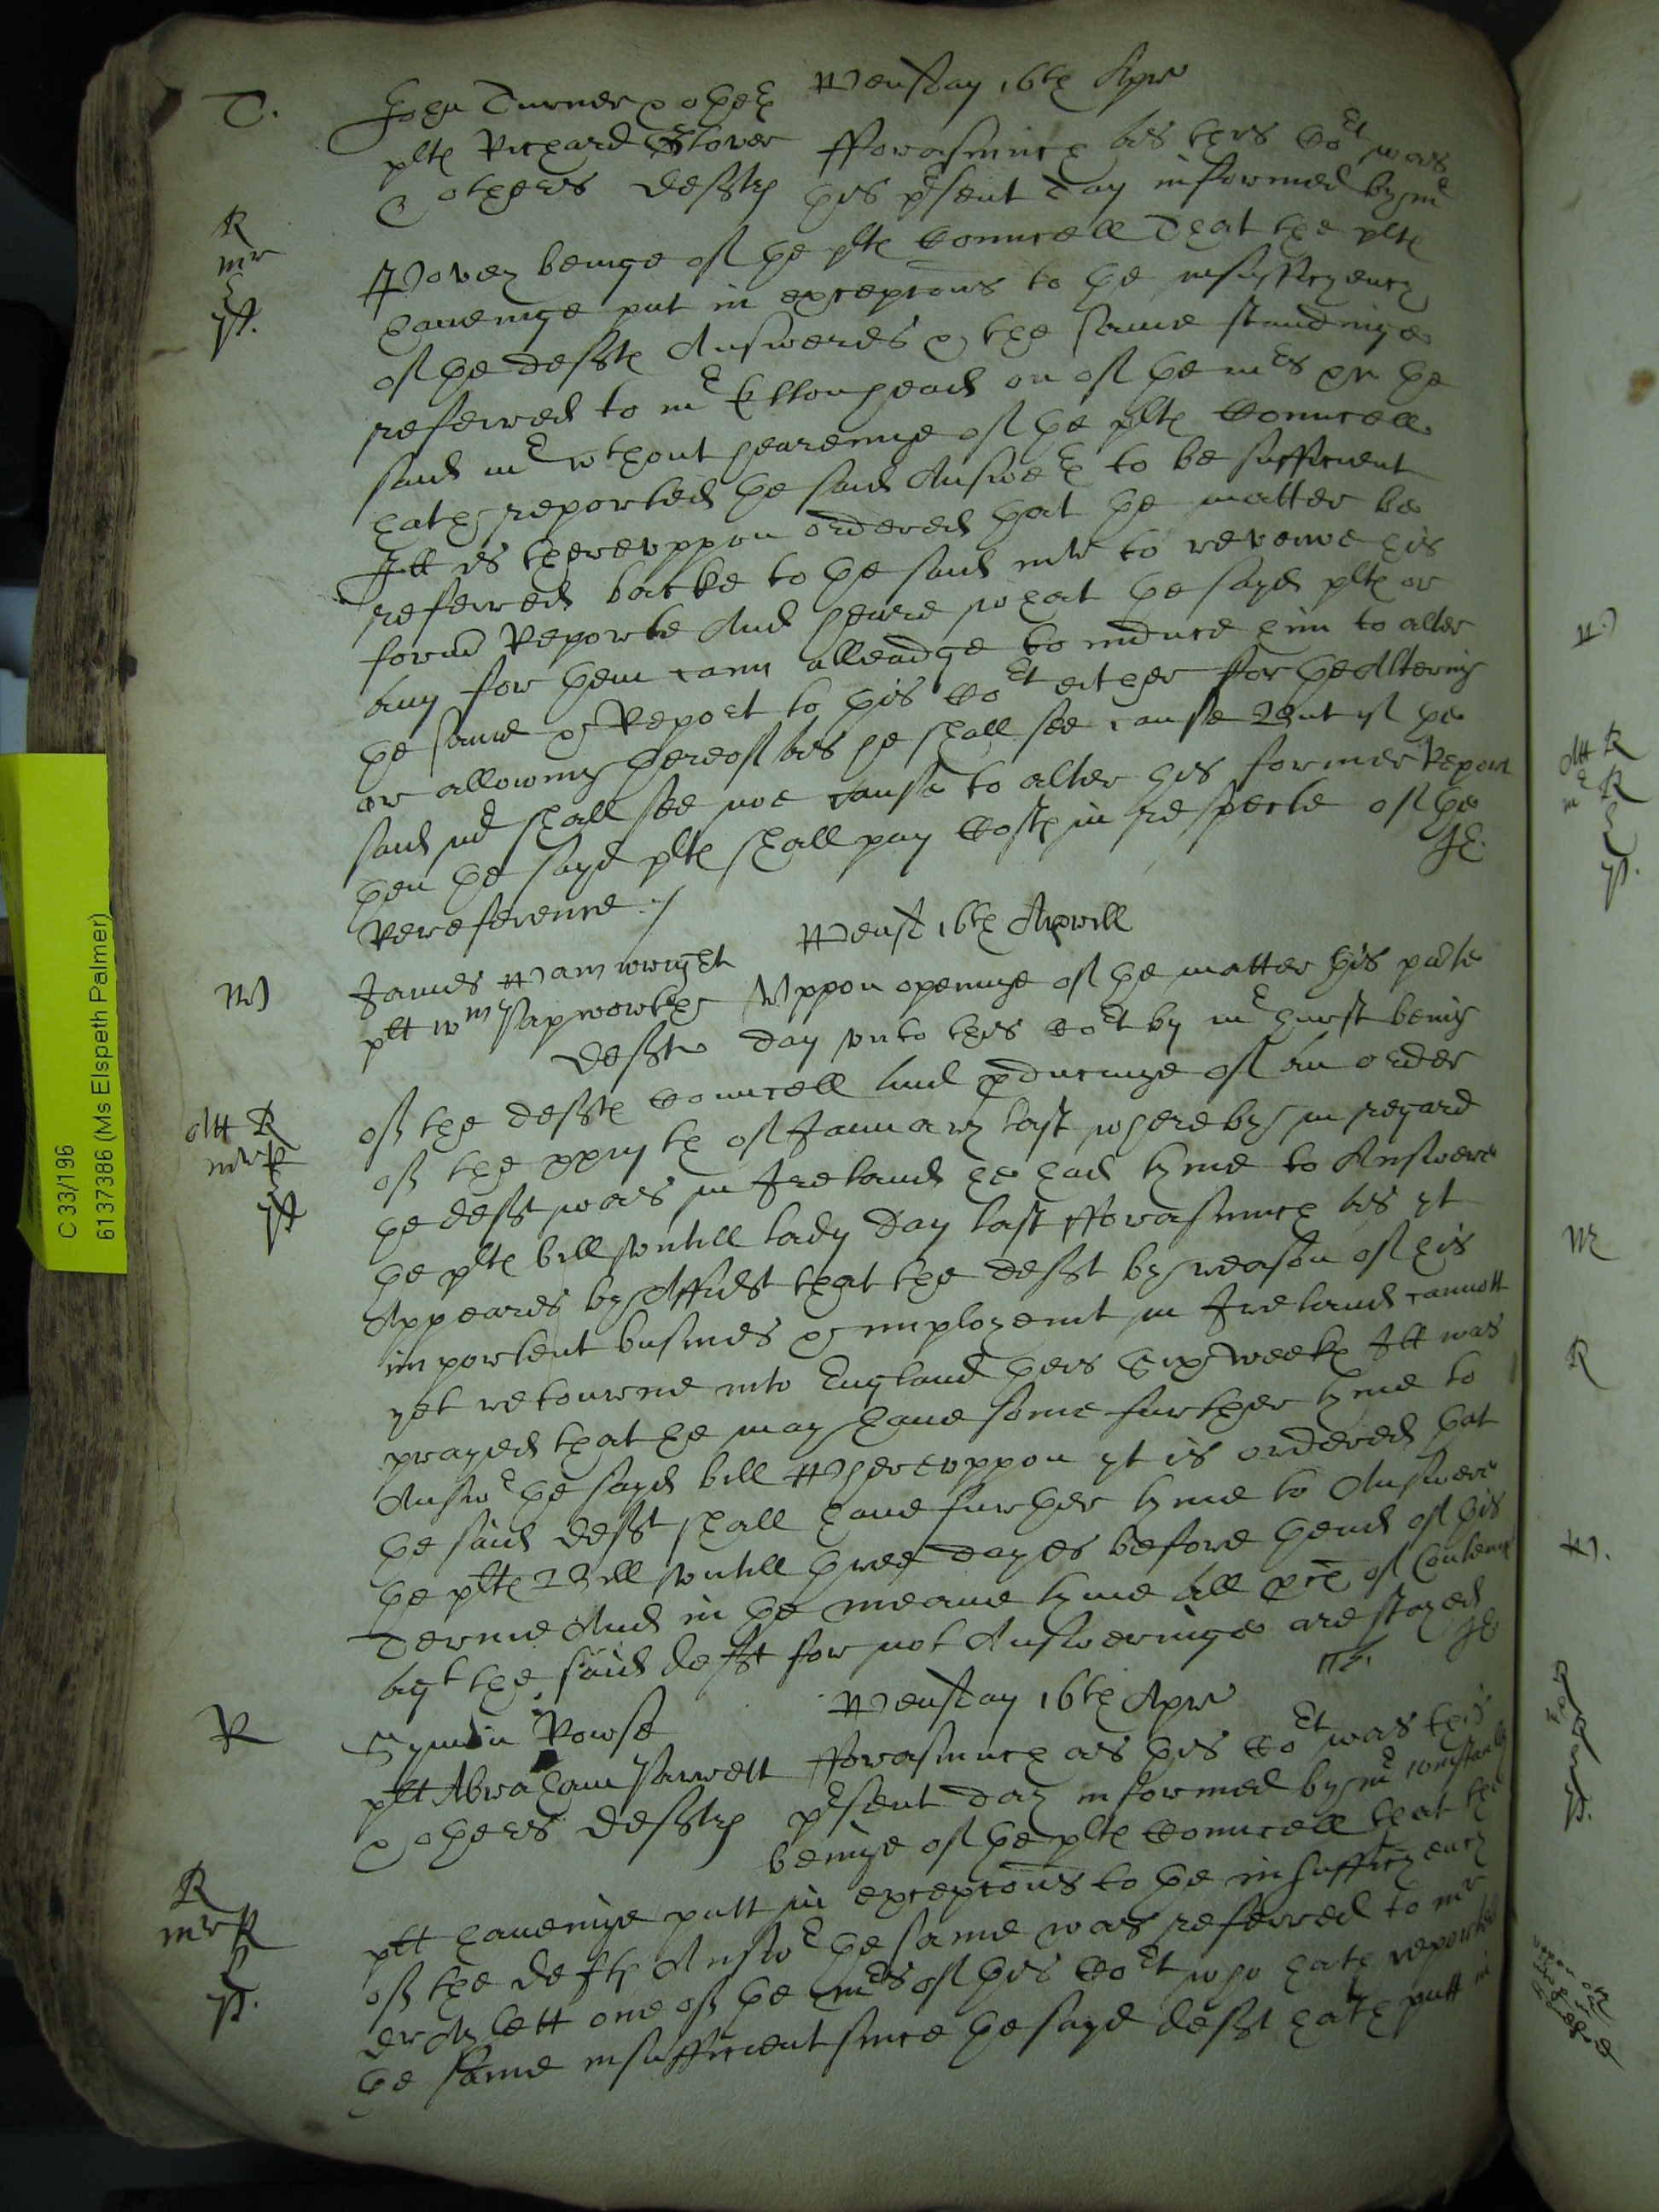 T. John Turner & othrs Wensday 16th Apr
plts Richard Glover fforasmuch as this Cort was
& others defts this psent day informed by mr
Povey beinge of the plts Councell That the plts
haveinge put in excepcons to the insufficyency
of the defts Answeres & the same standinge
referred to mr Eltonhead on of the mrs &c the
said mr without heareinge of the plts Councell
hath reported the said Answers to be sufficient
Itt is thereuppon ordered that the matter be
referred backe to the said mr to reveiwe his
former Reporte And heare what the sayd plts or
any for them cann alleadge to induce him to alter
the same & Report to this Cort either for the Altering
or allowing thereof as he shall see cause But if the
said mr shall see noe cause to alter his former Report
then the sayd plts shall pay Costs in respecte of the
Rereference
W James Wainwright Wenst 16th Aprill
plt Wm Papworth Uppon openinge of the matter this psente
deft day unto this Cort by mr hurst being
of the defts Councell and pducinge of an order
of the xxviijth of January last whereby in regard
the deft was in Ireland he had tyme to Answere
the plts bill untill lady day last fforasmuch as yt
Appeares by Affidt that the deft by reason of his
importent busines & imployemt in Ireland cannott
yet retourne into England theis Six weeks Itt was
prayed that he may have some further tyme to
Answr the sayd bill Whereuppon yt is ordered that
the said deft shall have further tyme to Answere
the plts Bill untill three dayes before thend of this
Terme And in the meane tyme all pces of Contempt
agt the said deft for not Answeringe are stayed
R Symon Rowse Wensday 16th Apr
plt Abraham Jarrett fforasmuch as this Cort was this
& others defts psent day informed by mr constantyn
beinge of the plts Councell that the
plt haveinge putt in excepcons to the insufficyency
of the defts Answr the same was referred to mr
Page lett one of the mrs of this Cort who hath reported
the same insufficient since the sayd deft hath putt in
C 33/196
6137386 (Ms Elspeth Palmer)